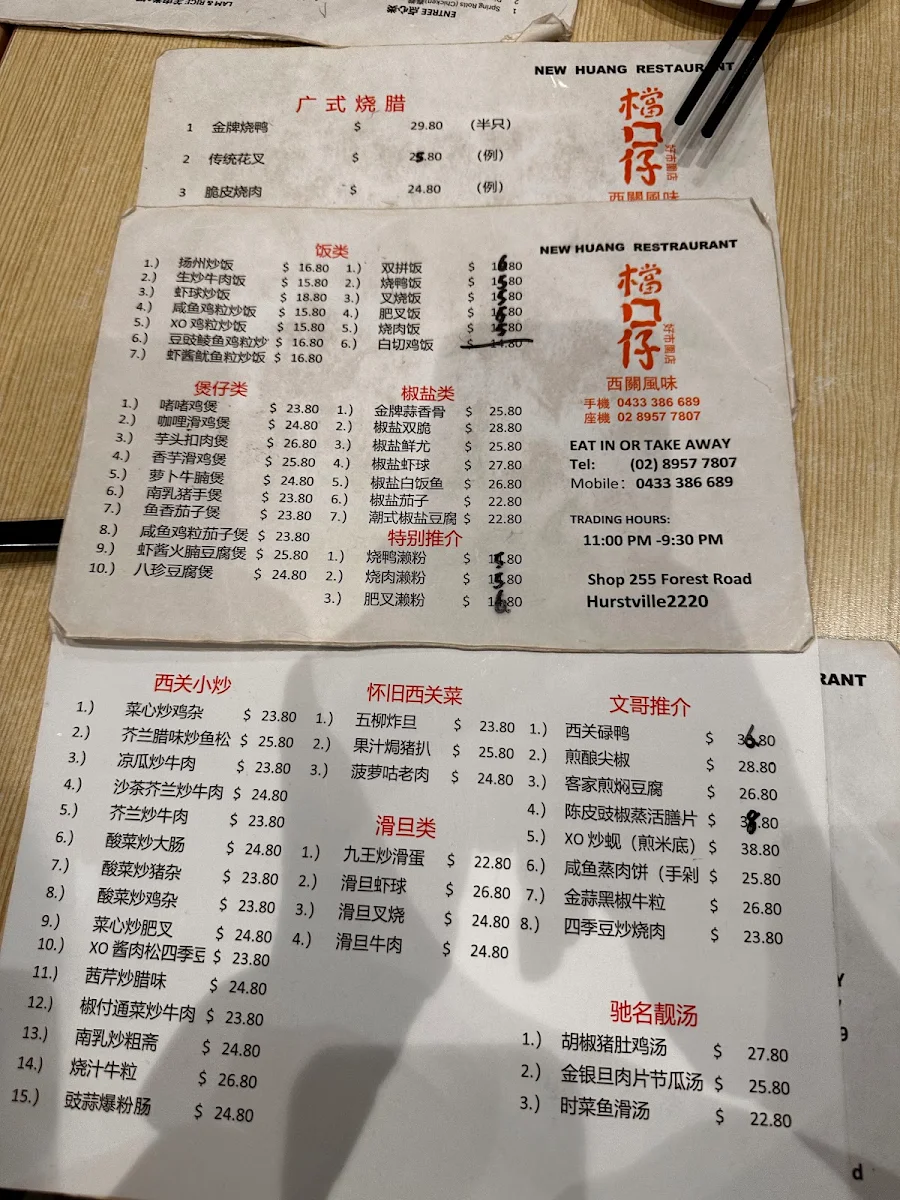 ENTREE 点心类
Spring Rolls (Chicken)春卷
NEW HUANG RESTAURANT
广式烧腊
1 金牌烧鸭 $ 29.80 (半只)
2 传统花叉 $ 25.80 (例)
3 脆皮烧肉 $ 24.80 (例)
檔口仔
好市圍店
西關風味
NEW HUANG RESTRAURANT
檔口仔
好市圍店
西關風味
手機 0433 386 689
座機 02 8957 7807
EAT IN OR TAKE AWAY
Tel: (02) 8957 7807
Mobile: 0433 386 689
TRADING HOURS:
11:00 PM -9:30 PM
Shop 255 Forest Road
Hurstville2220
饭类
1.) 扬州炒饭 $ 16.80
2.) 生炒牛肉饭 $ 15.80
3.) 虾球炒饭 $ 18.80
4.) 咸鱼鸡粒炒饭 $ 15.80
5.) XO 鸡粒炒饭 $ 15.80
6.) 豆豉鲮鱼鸡粒炒 $ 16.80
7.) 虾酱鱿鱼粒炒饭 $ 16.80
1.) 双拼饭 $ 16.80
2.) 烧鸭饭 $ 15.80
3.) 叉烧饭 $ 15.80
4.) 肥叉饭 $ 1 .80
5.) 烧肉饭 $ 15.80
6.) 白切鸡饭 $ 14.80
煲仔类
1.) 啫啫鸡煲 $ 23.80
2.) 咖哩滑鸡煲 $ 24.80
3.) 芋头扣肉煲 $ 26.80
4.) 香芋滑鸡煲 $ 25.80
5.) 萝卜牛腩煲 $ 24.80
6.) 南乳猪手煲 $ 23.80
7.) 鱼香茄子煲 $ 23.80
8.) 咸鱼鸡粒茄子煲 $ 23.80
9.) 虾酱火腩豆腐煲 $ 25.80
10.) 八珍豆腐煲 $ 24.80
椒盐类
1.) 金牌蒜香骨 $ 25.80
2.) 椒盐双脆 $ 28.80
3.) 椒盐鲜尤 $ 25.80
4.) 椒盐虾球 $ 27.80
5.) 椒盐白饭鱼 $ 26.80
6.) 椒盐茄子 $ 22.80
7.) 潮式椒盐豆腐 $ 22.80
特别推介
1.) 烧鸭濑粉 $ 15.80
2.) 烧肉濑粉 $ 15.80
3.) 肥叉濑粉 $ 16.80
西关小炒
1.) 菜心炒鸡杂 $ 23.80
2.) 芥兰腊味炒鱼松 $ 25.80
3.) 凉瓜炒牛肉 $ 23.80
4.) 沙茶芥兰炒牛肉 $ 24.80
5.) 芥兰炒牛肉 $ 23.80
6.) 酸菜炒大肠 $ 24.80
7.) 酸菜炒猪杂 $ 23.80
8.) 酸菜炒鸡杂 $ 23.80
9.) 菜心炒肥叉 $ 24.80
10.) XO 酱肉松四季豆 $ 23.80
11.) 茜芹炒腊味 $ 24.80
12.) 椒付通菜炒牛肉 $ 23.80
13.) 南乳炒粗斋 $ 24.80
14.) 烧汁牛粒 $ 26.80
15.) 豉蒜爆粉肠 $ 24.80
怀旧西关菜
1.) 五柳炸旦 $ 23.80
2.) 果汁焗猪扒 $ 25.80
3.) 菠萝咕老肉 $ 24.80
滑旦类
1.) 九王炒滑蛋 $ 22.80
2.) 滑旦虾球 $ 26.80
3.) 滑旦叉烧 $ 24.80
4.) 滑旦牛肉 $ 24.80
文哥推介
1.) 西关碌鸭 $ 36.80
2.) 煎酿尖椒 $ 28.80
3.) 客家煎焖豆腐 $ 26.80
4.) 陈皮豉椒蒸活膳片 $ 38.80
5.) XO 炒蚬（煎米底） $ 38.80
6.) 咸鱼蒸肉饼（手剁 $ 25.80
7.) 金蒜黑椒牛粒 $ 26.80
8.) 四季豆炒烧肉 $ 23.80
驰名靓汤
1.) 胡椒猪肚鸡汤 $ 27.80
2.) 金银旦肉片节瓜汤 $ 25.80
3.) 时菜鱼滑汤 $ 22.80
RANT
Y
9
d